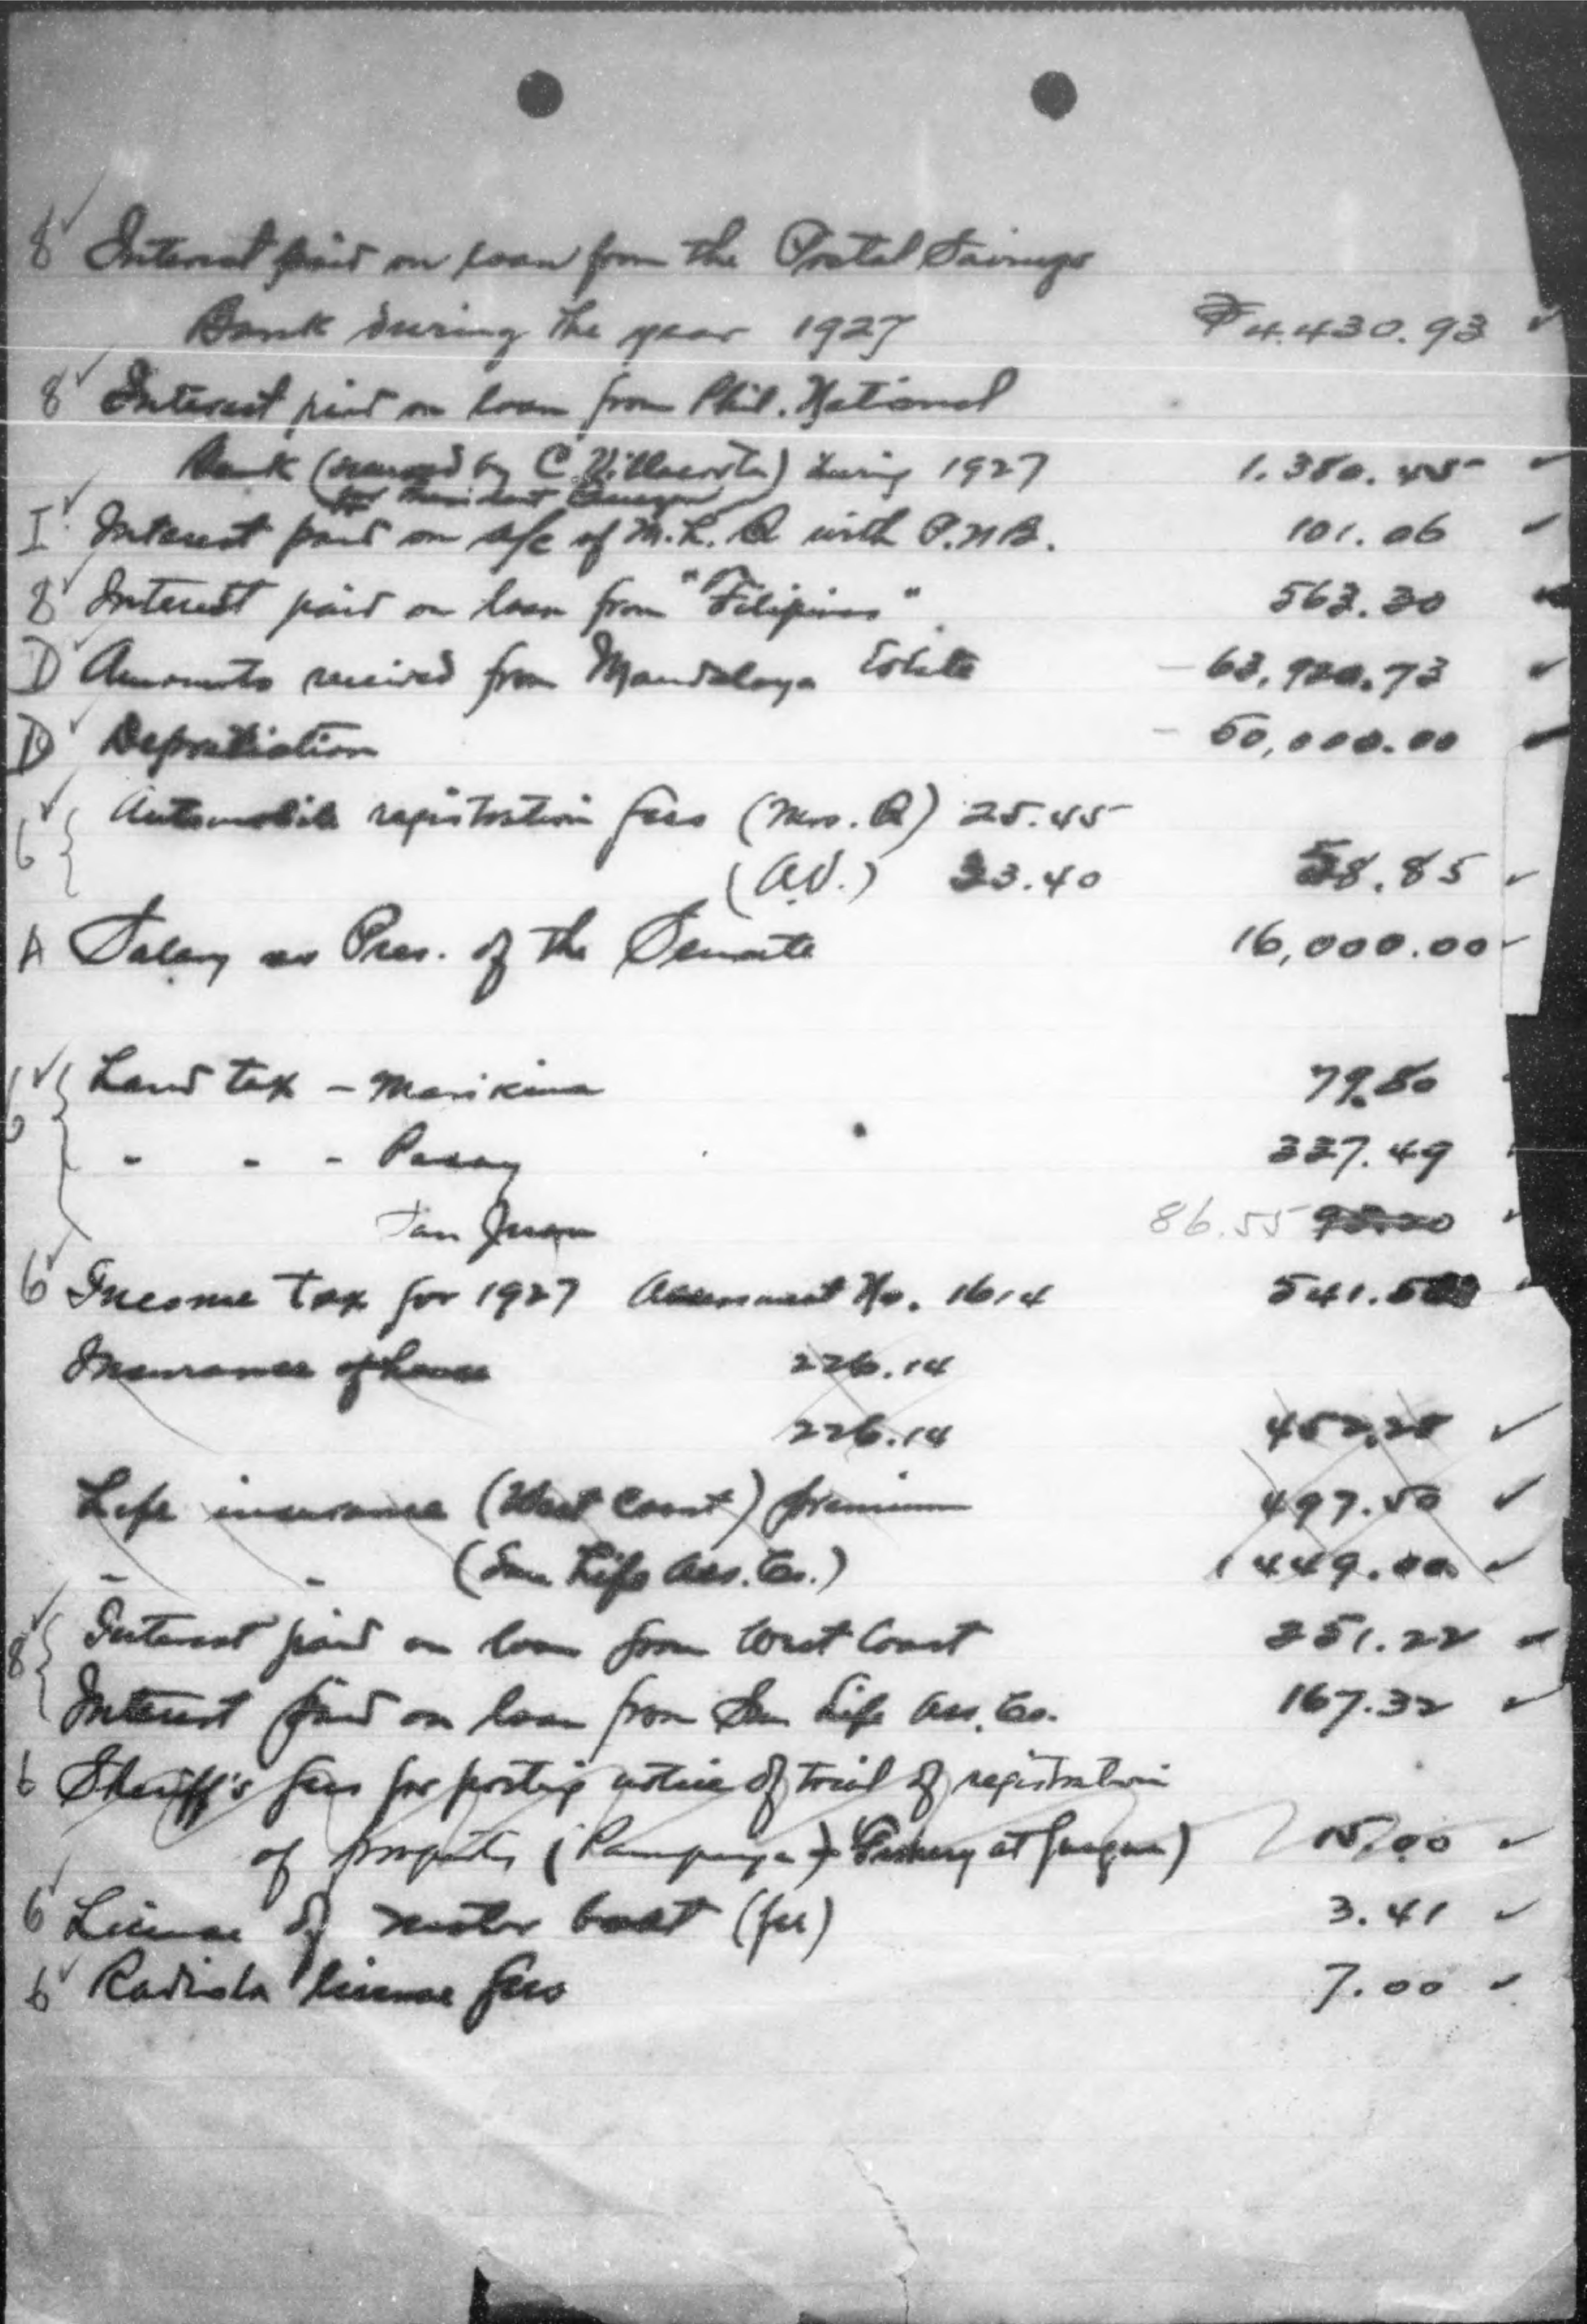 8 Interest paid on loan from the Postal Savings
Bank during the year 1927 ₱4.430.93
8 Interest paid on loan from Phil. National
Bank (secured by C. Villacorta) during 1927 1.380.45
for President Quezon
I Interest paid on a/c of M.L.Q with P.N.B. 101.06
8 Interest paid on loan from "Filipinas" 563.30
D Amounts received from Mandaloya Estate - 63,920.73
D Depreciation - 50,000.00
6 Automobile registration fees (Mrs. Q) 25.45
(A.V.) 33.40 58.85
A Salary as Pres. of the Senate 16,000.00
6 Land tax - Marikina 79.80
" " - Pasay 337.49
San Juan 86.55
6 Income tax for 1927 Assessment No. 1614 541.
Insurance of house 226.14
226.14 452.28
Life insurance (West Coast) premium 497.50
" " (Sun Life Ass. Co.) 1449.00
8 Interest paid on loan from West Coast 351.22
Interest paid on loan from Sun Life Ass. Co. 167.32
6 Sheriff's fees for posting notice of trial of registration
of property (Pampanga) Fishery at Guagua) 15.00
6 License of motor boat (fee) 3.41
6 Radiola license fees 7.00